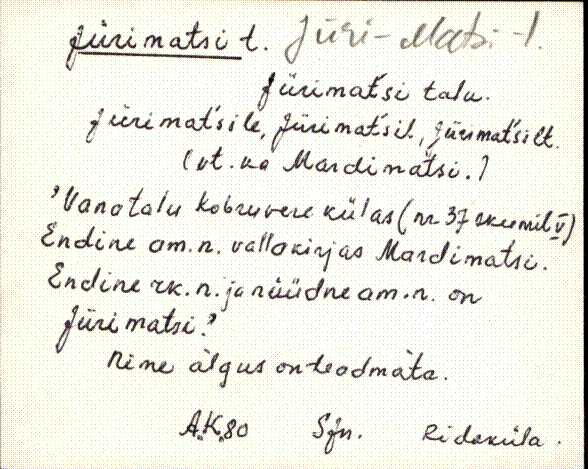 Jürimatsi t. Jüri-Matsi t.
Jürimat́si talu.
Jürimat́sile, Jürimat́sil, Jürimat́silt.
(vt. ka Mardimat́si.)
"Vanatalu Kobruvere külas (nr 37 skeemil V)
Endine am.n. vallakirjas Mardimatsi.
Endine rk.n. ja nüüdne am.n. on
Jürimatsi."
Nime algus on teadmata.
A.K. 80 Sjn. Ridaküla.